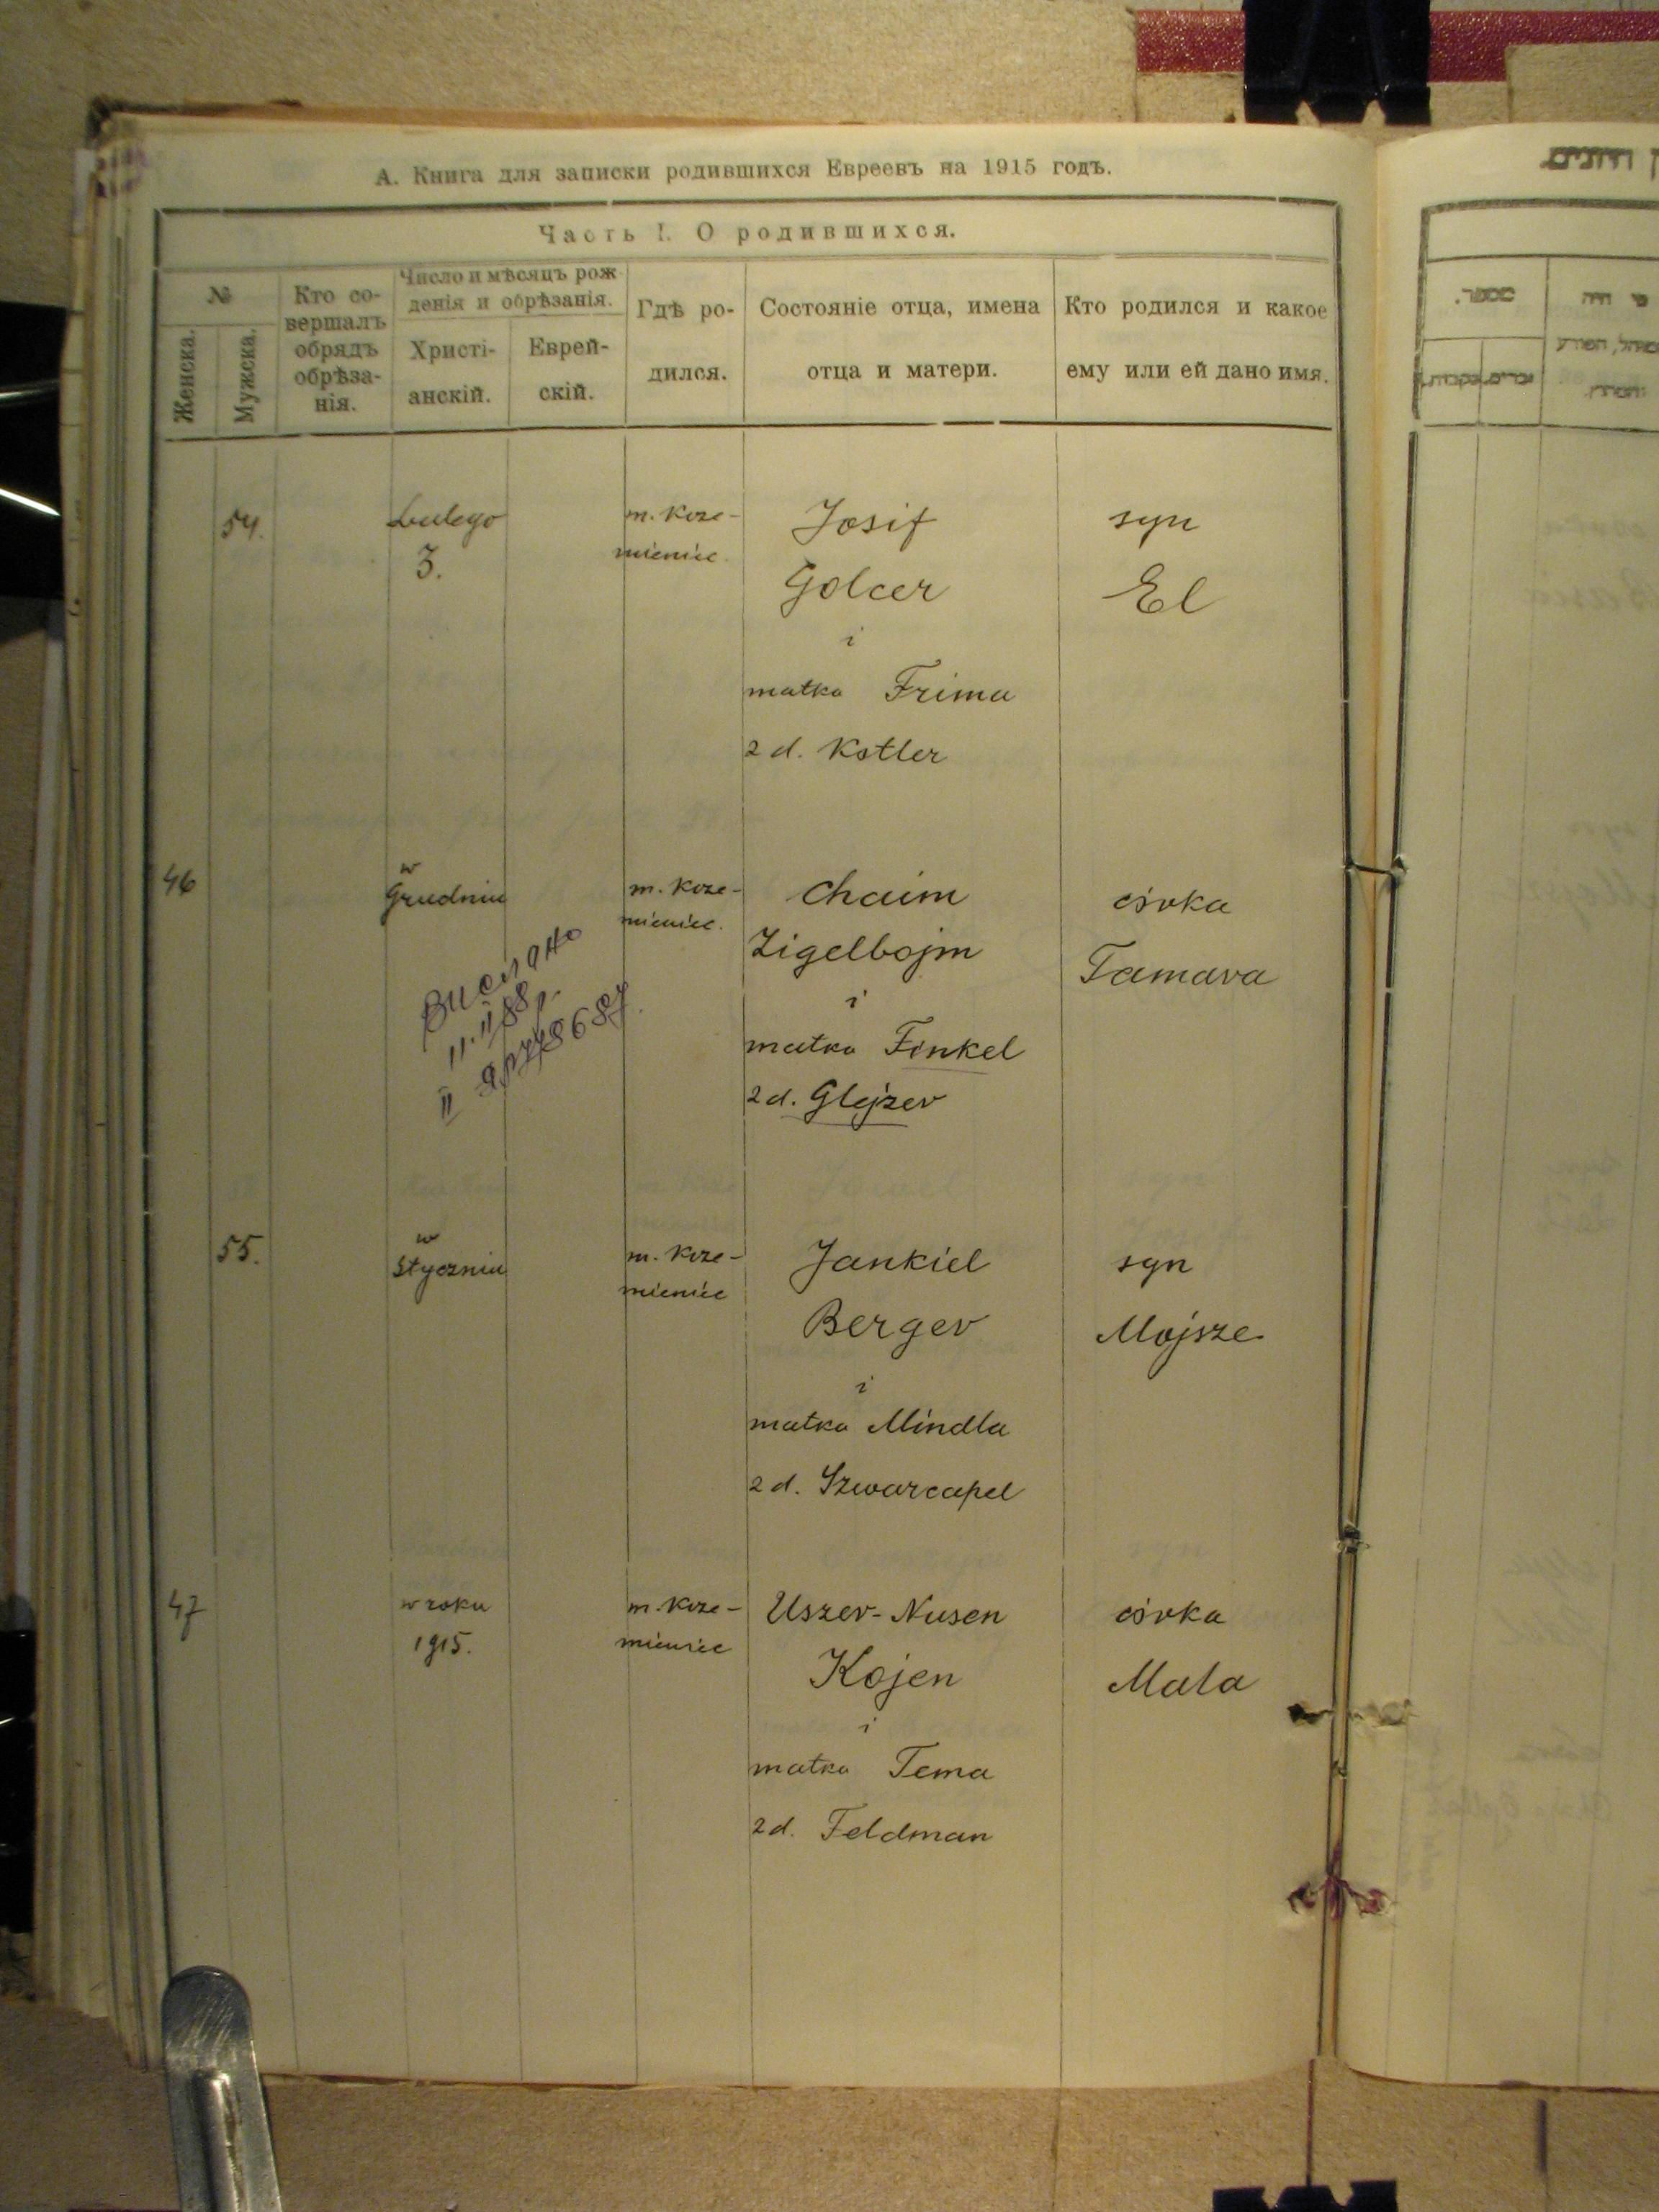 А. Книга для записки родившихся Евреевъ на 1915 годъ.
Часть I. О родившихся.
№
Женска.
Мужска.
Кто со-
вершалъ
обрядъ
обрѣза-
нія.
Число и мѣсяцъ рож
денія и обрѣзанія.
Христі-
анскій.
Еврей-
скій.
Гдѣ ро-
дился.
Состояніе отца, имена
отца и матери.
Кто родился и какое
ему или ей дано имя.
54.
Lutego
3.
m. Krze-
mieniec
Josif
Golcer
i
matka Frima
z d. Kotler
syn
El
46
w
Grudniu
m. Krze-
mieniec.
Chaim
Zigelbojm
i
matka Finkel
z d. Glejzer
córka
Tamara
Вислано
11.II 88р.
55.
w
Styczniu
m. Krze-
mieniec
Jankiel
Berger
i
matka Mindla
z d. Szwarcapel
syn
Mojsze
47
w roku
1915.
m. Krze-
mieniec
Uszer-Nusen
Kojen
i
matka Tema
z d. Feldman
córka
Mala